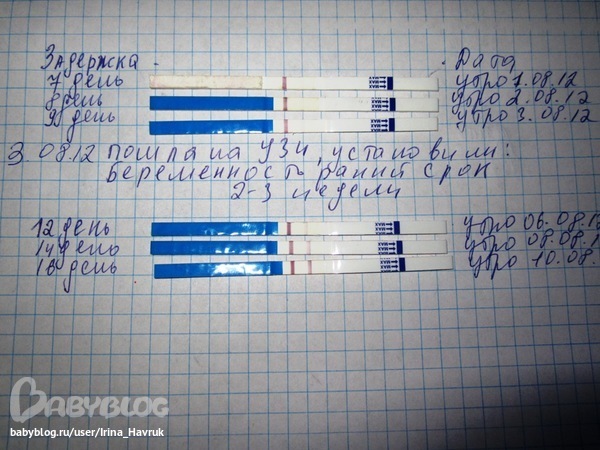 Задержка Дата
7 день утро 1.08.12
8 день утро 2.08.12
9 день утро 3.08.12
3.08.12 пошла на УЗИ, установили:
беременность ранний срок
2-3 недели
12 день утро 06.08.1
14 день утро 08.08.1
16 день утро 10.08.
MAX
MAX
MAX
MAX
MAX
MAX
BABYBLOG
babyblog.ru/user/Irina_Havruk